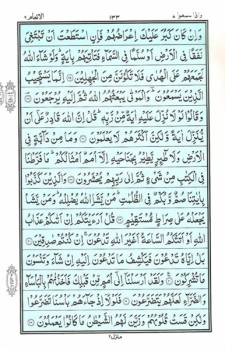 وإذا سمعوا ٧ ١٣٣ الانعام ٦
وَإِنْ كَانَ كَبُرَ عَلَيْكَ إِعْرَاضُهُمْ فَإِنِ اسْتَطَعْتَ أَنْ تَبْتَغِيَ
نَفَقًا فِي الْأَرْضِ أَوْ سُلَّمًا فِي السَّمَاءِ فَتَأْتِيَهُمْ بِآيَةٍ وَلَوْ شَاءَ اللَّهُ
لَجَمَعَهُمْ عَلَى الْهُدَى فَلَا تَكُونَنَّ مِنَ الْجَاهِلِينَ إِنَّمَا يَسْتَجِيبُ
الَّذِينَ يَسْمَعُونَ وَالْمَوْتَى يَبْعَثُهُمُ اللَّهُ ثُمَّ إِلَيْهِ يُرْجَعُونَ
وَقَالُوا لَوْلَا نُزِّلَ عَلَيْهِ آيَةٌ مِنْ رَبِّهِ قُلْ إِنَّ اللَّهَ قَادِرٌ عَلَى أَنْ
يُنَزِّلَ آيَةً وَلَكِنَّ أَكْثَرَهُمْ لَا يَعْلَمُونَ وَمَا مِنْ دَابَّةٍ فِي
الْأَرْضِ وَلَا طَائِرٍ يَطِيرُ بِجَنَاحَيْهِ إِلَّا أُمَمٌ أَمْثَالُكُمْ مَا فَرَّطْنَا
فِي الْكِتَابِ مِنْ شَيْءٍ ثُمَّ إِلَى رَبِّهِمْ يُحْشَرُونَ وَالَّذِينَ كَذَّبُوا
بِآيَاتِنَا صُمٌّ وَبُكْمٌ فِي الظُّلُمَاتِ مَنْ يَشَإِ اللَّهُ يُضْلِلْهُ وَمَنْ يَشَأْ
يَجْعَلْهُ عَلَى صِرَاطٍ مُسْتَقِيمٍ قُلْ أَرَأَيْتَكُمْ إِنْ أَتَاكُمْ عَذَابُ
اللَّهِ أَوْ أَتَتْكُمُ السَّاعَةُ أَغَيْرَ اللَّهِ تَدْعُونَ إِنْ كُنْتُمْ صَادِقِينَ
بَلْ إِيَّاهُ تَدْعُونَ فَيَكْشِفُ مَا تَدْعُونَ إِلَيْهِ إِنْ شَاءَ وَتَنْسَوْنَ
مَا تُشْرِكُونَ وَلَقَدْ أَرْسَلْنَا إِلَى أُمَمٍ مِنْ قَبْلِكَ فَأَخَذْنَاهُمْ بِالْبَأْسَاءِ
وَالضَّرَّاءِ لَعَلَّهُمْ يَتَضَرَّعُونَ فَلَوْلَا إِذْ جَاءَهُمْ بَأْسُنَا تَضَرَّعُوا
وَلَكِنْ قَسَتْ قُلُوبُهُمْ وَزَيَّنَ لَهُمُ الشَّيْطَانُ مَا كَانُوا يَعْمَلُونَ
منزل ٢